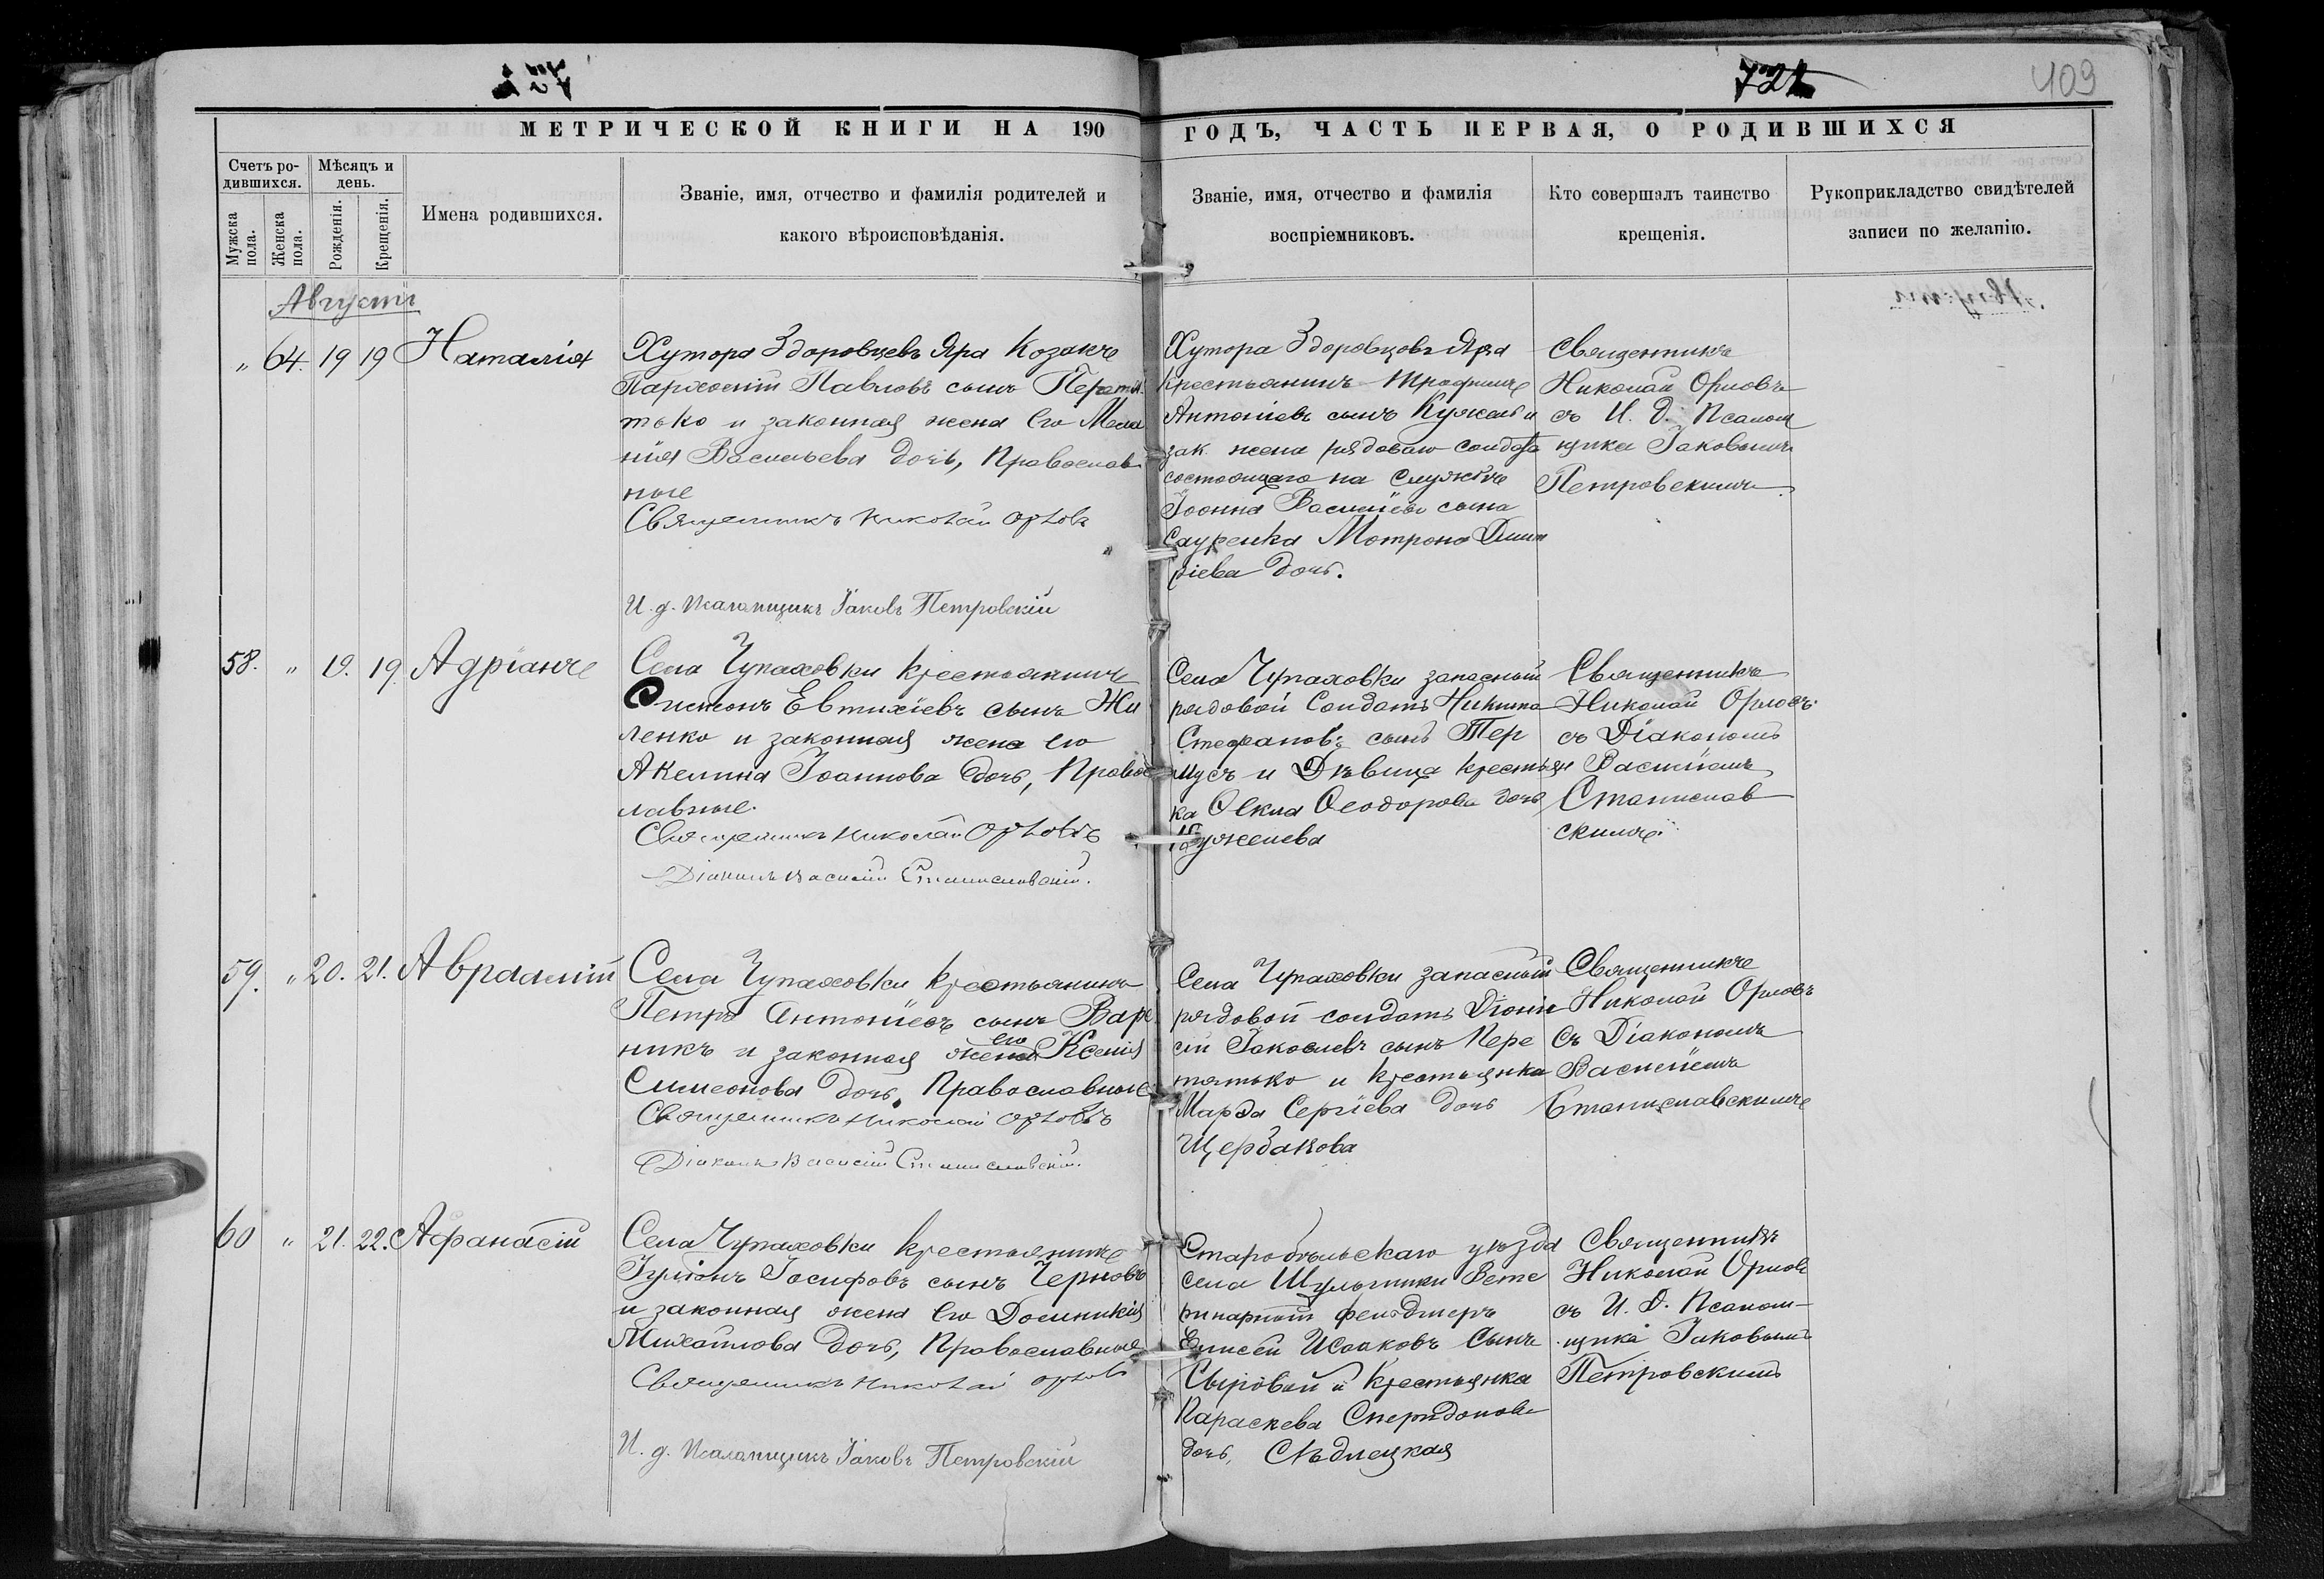 721
409
МЕТРИЧЕСКОЙ КНИГИ НА 190 ГОДЪ, ЧАСТЬ ПЕРВАЯ, О РОДИВШИХСЯ
Счетъ ро-
дившихся.
Мужска
пола.
Женска
пола.
Мѣсяцъ и
день.
Рожденія.
Крещенія.
Имена родившихся.
Званіе, имя, отчество и фамилія родителей и
какого вѣроисповѣданія.
Званіе, имя, отчество и фамилія
воспріемниковъ.
Кто совершалъ таинство
крещенія.
Рукоприкладство свидѣтелей
записи по желанію.
Августъ
" 64. 19 19 Наталія
Хутора Здоровцевъ Яра Козакъ
Пархомій Павловъ сынъ Перетя
тько и законная жена его Мела
нія Васильева дочь, Православ
ные
Священникъ Николай Орловъ
И. д. Псаломщикъ Іаковъ Петровскій
Хутора Здоровцовъ Яра
крестьянинъ Трофимъ
Антоніевъ сынъ Кужель и
зак. жена рядоваго солдата
состоящаго на службѣ
Іоанна Васильева сына
Сауренка Мотрона Дмит
ріева дочь.
Священникъ
Николай Орловъ
съ И. д. Псалом
щика Іаковымъ
Петровскимъ
58. " 19. 19. Адріанъ
Села Чупаховки крестьянинъ
Симеонъ Евтихіевъ сынъ Жи
ленко и законная жена его
Акелина Іоаннова дочь, Правос
лавные.
Священникъ Николай Орловъ
Діаконъ Василій Станиславскій.
Села Чупаховки запасный
рядовой Солдатъ Никита
Стефановъ сынъ Тер
мусъ и Дѣвица крестьян
ка Ѳекла Ѳеодорова дочь
Кужелева
Священникъ
Николай Орловъ
съ Діакономъ
Василіемъ
Станислав
скимъ.
59. " 20. 21. Авраамій
Села Чупаховки крестьянинъ
Петръ Антоніевъ сынъ Варе
никъ и законная жена его Ксенія
Симеонова дочь, Православные
Священникъ Николай Орловъ
Діаконъ Василій Станиславскій.
Села Чупаховки запасный
рядовой солдатъ Діони
сій Іаковлевъ сынъ Пере
тятько и крестьянка
Марѳа Сергіева дочь
Щербакова
Священникъ
Николай Орловъ
съ Діакономъ
Василіемъ
Станиславскимъ
60 " 21. 22. Афанасій
Села Чупаховки крестьянинъ
Іуліанъ Іосифовъ сынъ Черновъ
и законная жена его Домникія
Михайлова дочь, Православные
Священникъ Николай Орловъ
И. д. Псаломщикъ Іаковъ Петровскій
Старобѣльскаго уѣзда
села Шульгинки Вете
ринарный фельдшеръ
Елисей Исааковъ сынъ
Сыровой и крестьянка
Параскева Спиридонова
дочь, Слѣдлецкая
Священникъ
Николай Орловъ
съ И. д. Псалом-
щика Іаковымъ
Петровскимъ